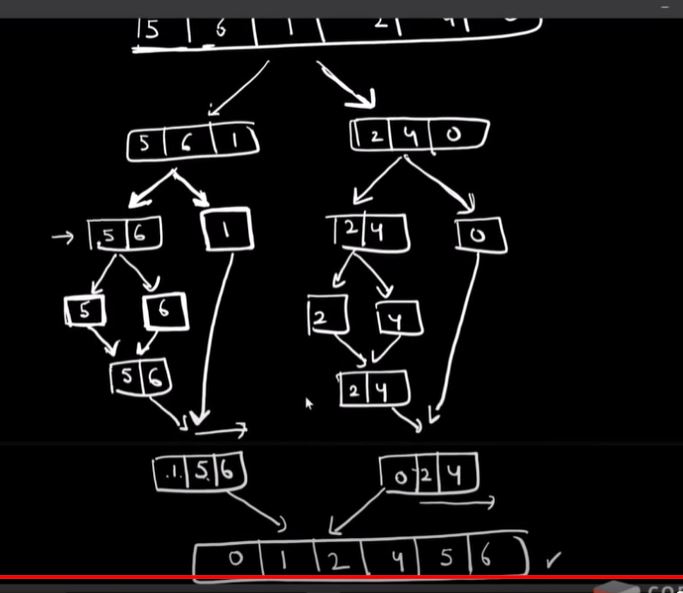 5 6 1 2 4
5 6 1 2 4 0
5 6 1 2 4 0
5 6 2 4
5 6 2 4
1 5 6 0 2 4
0 1 2 4 5 6